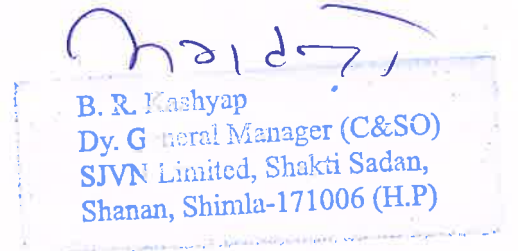 B. R. Kashyap
Dy. General Manager (C&SO)
SJVN Limited, Shakti Sadan,
Shanan, Shimla-171006 (H.P)